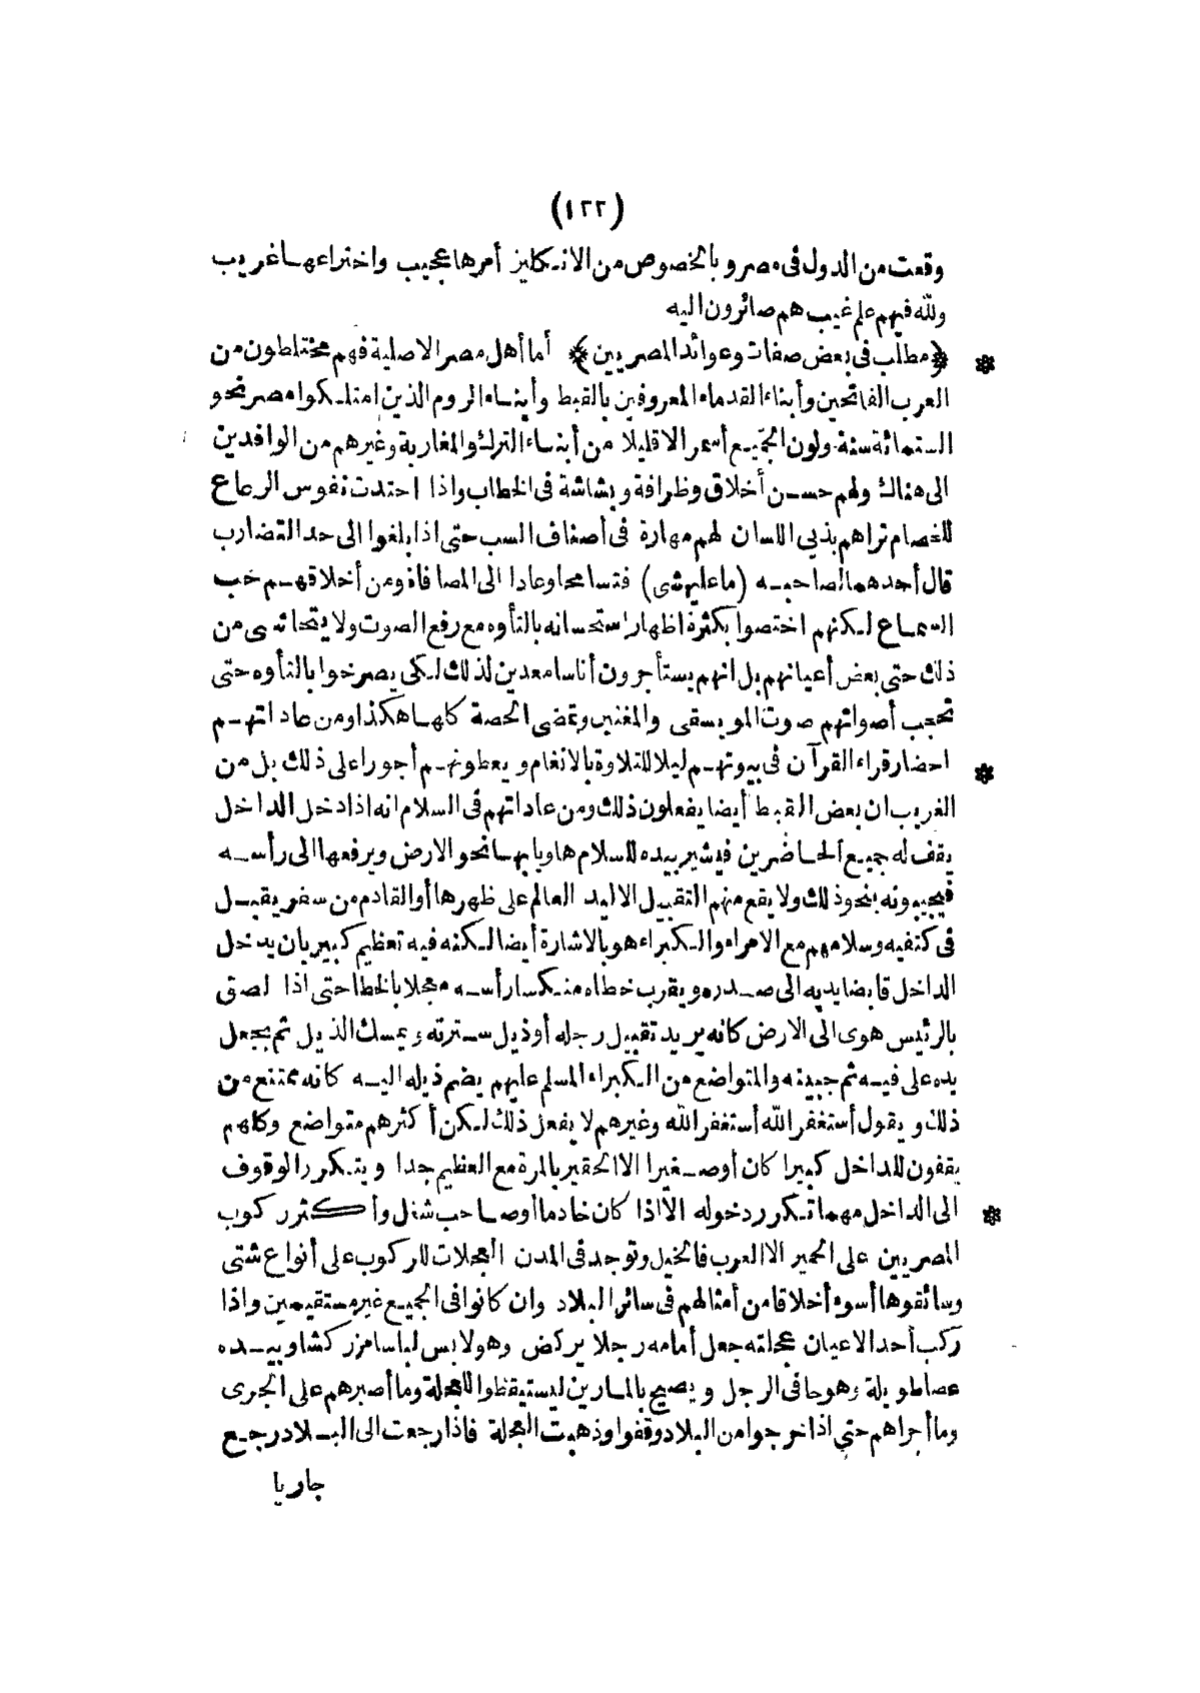 (١٢٢)
وقعت من الدول فى مصر و بالخصوص من الانكليز أمرها عجيب واختراعها غريب
ولله فيهم علم غيب هم صائرون اليه
* ﴿مطلب فى بعض صفات وعوائد المصريين﴾ أما أهل مصر الاصلية فهم مختلطون من
العرب الفاتحين وأبناء القدماء المعروفين بالقبط وأبناء الروم الذين امتلكوا مصر نحو
الستمائة سنة ولون الجميع أسمر الا قليلا من أبناء الترك والمغاربة وغيرهم من الوافدين
الى هناك ولهم حسن أخلاق وظرافة و بشاشة فى الخطاب واذا احتدت نفوس الرعاع
للخصام تراهم بذيى اللسان لهم مهارة فى أصناف السب حتى اذا بلغوا الى حد التضارب
قال أحدهما لصاحبه (ماعليهشى) فتسامحا وعادا الى المصافاة ومن أخلاقهم حب
السماع لكنهم اختصوا بكثرة اظهار استحسانه بالتأوه مع رفع الصوت ولا يتحاشى من
ذلك حتى بعض أعيانهم بل انهم يستأجرون أناسا معدين لذلك لكى يصرخوا بالتأوه حتى
تحجب أصواتهم صوت الموسيقى والمغنين وتمضى الحصة كلها هكذا ومن عاداتهم
* احضار قراء القرآن فى بيوتهم ليلا للتلاوة بالانغام و يعطونهم أجورا على ذلك بل من
الغريب ان بعض القبط أيضا يفعلون ذلك ومن عاداتهم فى السلام انه اذا دخل الداخل
يقف له جميع الحاضرين فيشير بيده للسلام هاويا بها نحو الارض ويرفعها الى رأسه
فيجيبونه بنحو ذلك ولا يقع منهم التقبيل الا ليد العالم على ظهرها أو القادم من سفر يقبل
فى كتفيه وسلامهم مع الامراء والكبراء هو بالاشارة أيضا لكنه فيه تعظيم كبير بان يدخل
الداخل قابضا يديه الى صدره و يقرب خطاه منكسا رأسه معجلا بالخطا حتى اذا لصق
بالرئيس هوى الى الارض كانه يريد تقبيل رجله أو ذيل سترته و يمسك الذيل ثم يجعل
يده على فيه ثم جبينه والمتواضع من الكبراء المسلم عليهم يضم ذيله اليه كانه ممتنع من
ذلك و يقول أستغفر الله أستغفر الله وغيرهم لا يفعل ذلك لكن أكثرهم متواضع وكلهم
يقفون للداخل كبيرا كان أو صغيرا الا الحقير بالمرة مع العظيم جدا و يتكرر الوقوف
* الى الداخل مهما تكرر دخوله الا اذا كان خادما أو صاحب شغل وأكثر ركوب
المصريين على الحمير الا العرب فالخيل وتوجد فى المدن العجلات للركوب على أنواع شتى
وسائقوها أسوء أخلاقا من أمثالهم فى سائر البلاد وان كانوا فى الجميع غير مستقيمين واذا
ركب أحد الاعيان عجلته جعل أمامه رجلا يركض وهو لابس لباسا مزركشا و بيده
عصا طويلة وهو حافى الرجل و يصيح بالمارين ليستيقظوا للعجلة وما أصبرهم على الجرى
وما أجراهم حتى اذا خرجوا من البلاد وقفوا وذهبت العجلة فاذا رجعت الى البلاد رجع
جاريا